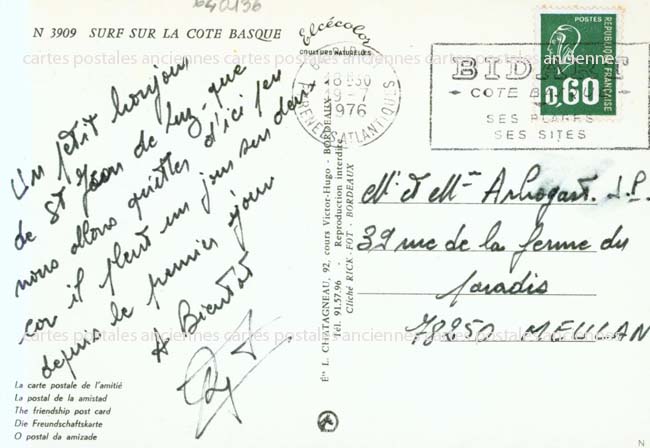 640136
N 3909 SURF SUR LA COTE BASQUE
Elcécolor
COULEURS NATURELLES
Un petit bonjour
de St Jean de Luz que
nous allons quitter d'ici peu
car il pleut un jour sur deux
depuis le premier jour
A Bientôt
La carte postale de l'amitié
La postal de la amistad
The friendship post card
Die Freundschaftskarte
O postal da amizade
Éts L. CHATAGNEAU, 92, cours Victor-Hugo - BORDEAUX
Tél. 91.57.96 - Reproduction interdite
Cliché RICK-FOT - BORDEAUX
18H30
19-7
1976
PYRENEES ATLANTIQUES
BIDART
COTE BASQUE
SES PLAGES
SES SITES
POSTES
REPUBLIQUE FRANÇAISE
0,60
Mr et Mme Arhogast J.P.
39 rue de la ferme du
paradis
78250 MEULAN
N
cartes postales anciennes cartes postales anciennes cartes postales anciennes
cartes postales anciennes cartes postales anciennes cartes postales anciennes